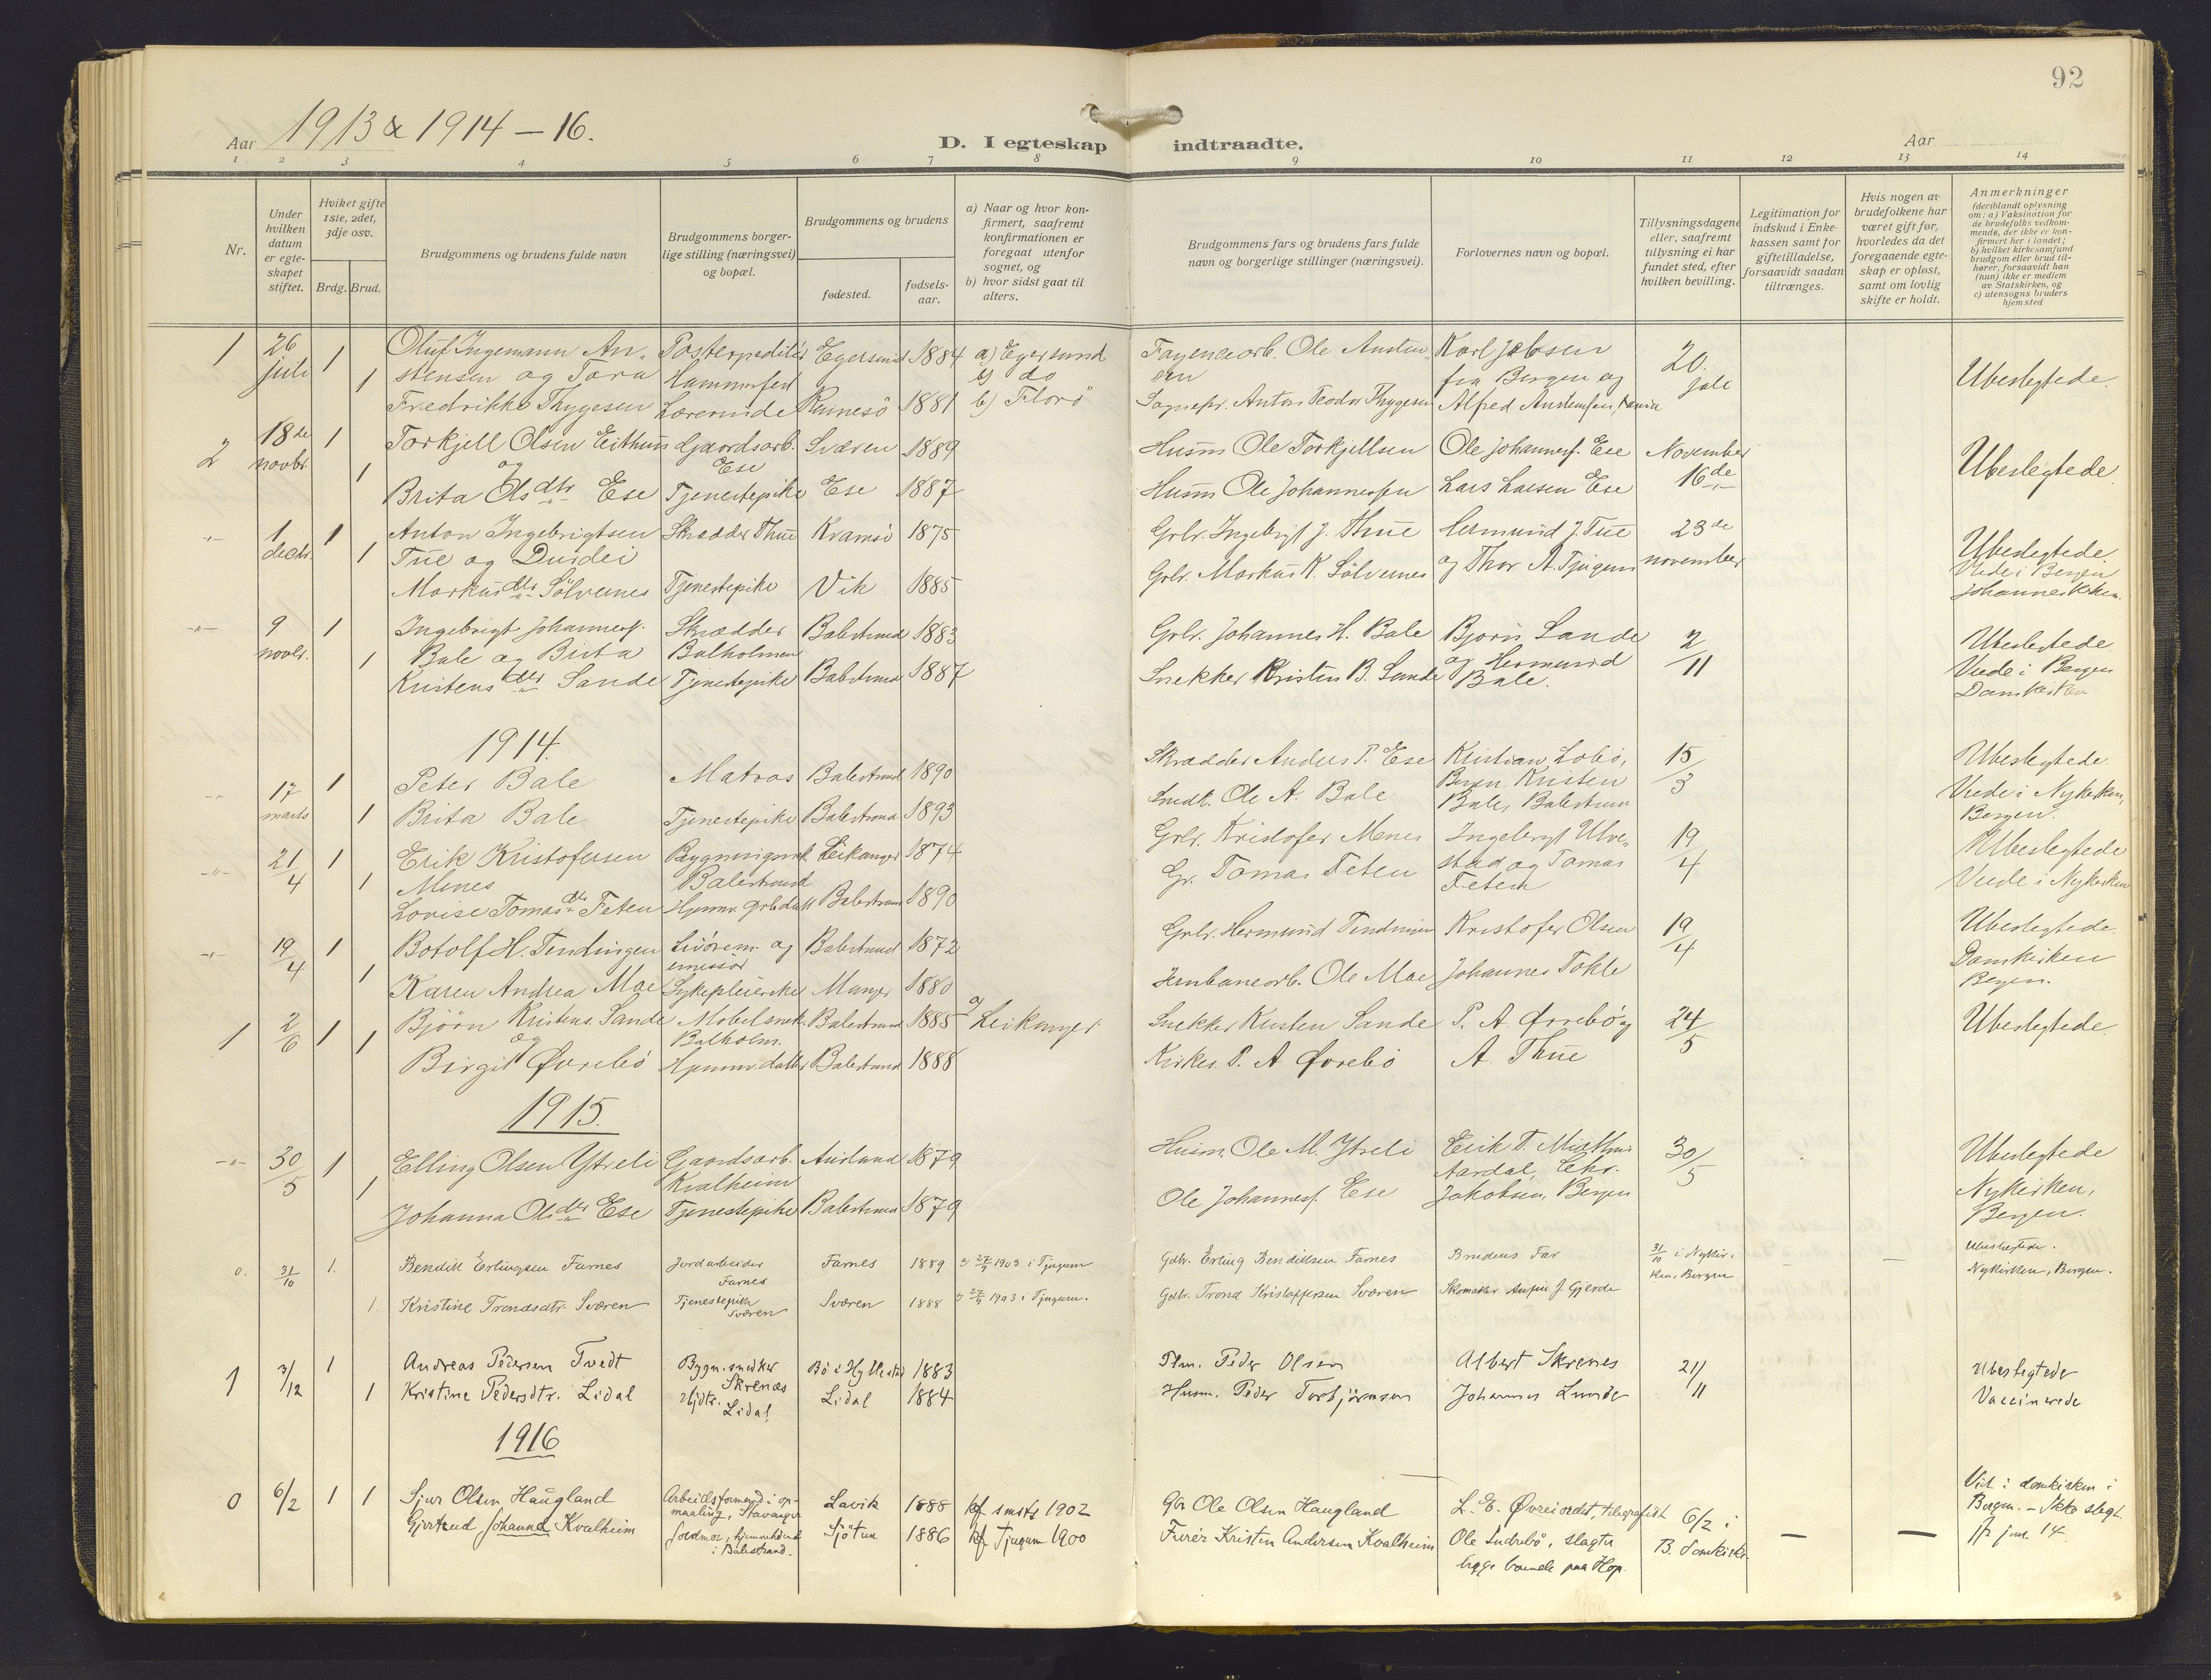 92
Aar 1913 & 1914 – 16.
D. I egteskap indtraadte.
Aar
1 2 3 4 5 6 7 8 9 10 11 12 13 14
Nr.
Under hvilken datum er egte-skapet stiftet.
Hviket gifte 1ste, 2det, 3dje osv.
Brdg. Brud.
Brudgommens og brudens fulde navn
Brudgommens borger-lige stilling (næringsvei) og bopæl.
Brudgommens og brudens
fødested.
fødsels-aar.
a) Naar og hvor kon-firmert, saafremt konfirmationen er foregaat utenfor sognet, og
b) hvor sidst gaat til alters.
Brudgommens fars og brudens fars fulde navn og borgerlige stillinger (næringsvei).
Forlovernes navn og bopæl.
Tillysningsdagene eller, saafremt tillysning ei har fundet sted, efter hvilken bevilling.
Legitimation for indskud i Enke-kassen samt for giftetilladelse, forsaavidt saadan tiltrænges.
Hvis nogen av brudefolkene har været gift før, hvorledes da det foregaaende egte-skap er opløst, samt om lovlig skifte er holdt.
Anmerkninger (deriblandt oplysning om: a) Vaksination for de brudefolks vedkom-mende, der ikke er kon-firmert her i landet; b) hvilket kirkesamfund brudgom eller brud til-hører, forsaavidt han (hun) ikke er medlem av Statskirken, og c) utensogns bruders hjemsted
1 26 juli 1 Oluf Ingemann Au- Postexpeditör Egersund 1884 a) Egersund Fayencearb. Ole Austen- Karl Jebsen 20. juli Ubeslegtede.
1 stensen og Tora Hammerfest b) do sen fra Bergen og
Fredrikke Thygesen Lærerinde Rennesö 1881 b) Florö Sognepr. Anton Teodor Thygesen Alfred Austensen,
2 18de novbr. 1 Torkjell Olsen Eithun Gaardsarb. Sværen 1889 Husm Ole Torkjellsen Ole Johannesf. Ese November 16de Ubeslegtede.
og Ese
1 Brita Olsdtr Ese Tjenestepike Ese 1887 Husm Ole Johannessen Lars Larsen Ese
-"- 1 decbr. 1 Anton Ingebrigtsen Skrædder Thue Kvamsö 1875 Grbr. Ingebrigt J. Thue Hermund J. Tue 23de november Ubeslegtede
1 Tue og Viede i Bergen
Markusdtr Sölvernes Tjenestepike Vik 1885 Grbr. Markus K. Sölvernes og Thor A. Tjugum Johanneskirken.
-"- 9 novbr. 1 Ingebrigt Johannesf. Skrædder Balestrand 1883 Grbr. Johannes H. Bale Bjorn Sande 2/11 Ubeslegtede.
1 Bale og Brita Balholmen og Hermund Viede i Bergen
Kristensdtr Sande Tjenestepike Balestrand 1887 Snekker Kristen B. Sande Bale. Domkirken
1914.
-"- 17 marts 1 Peter Bale Matros Balestrand 1890 Skrædder Anders P. Ese Kristian Lobö, 15/3 Ubeslegtede.
Bergen, Kristen Viede i Nykirken,
1 Brita Bale Tjenestepike Balestrand 1893 Ole A. Bale Bale, Balestrand Bergen.
-"- 21/4 1 Erik Kristofersen Leikanger 1874 Grbr. Kristofer Menes Ingebrigt Ulve- 19/4 Ubeslegtede
1 Menes Balestrand Gr. Tomas Feten stad og Tomas Viede i Nykirken
Lovise Tomasdtr Feten Balestrand 1890 Feten
-"- 19/4 1 Botolf H. Tendingen og Balestrand 1872 Grbr. Hermund Kristofer Olsen 19/4 Ubeslegtede.
emissær Domkirken
1 Karen Andrea Moe Sykepleierske Manger 1880 Jernbanearb. Ole Moe Johannes Tokle Bergen.
1 2/6 1 Björn Kristens. Sande Möbelsnek. Balestrand 1885 a) Leikanger Snekker Kristen Sande P. A. Örebö og 24/5 Ubeslegtede.
og Balholm.
1 Birgit Øvrebö Hjemmv. datter Balestrand 1888 Kirkes. P. A Øvrebö A. Thue
1915.
-"- 30/5 1 Elling Olsen Ytreli Gaardsarb. Aurland 1879 Husm. Ole M. Ytreli Erik T. 30/5 Ubeslegtede
Kvalheim Aardal, Chr. Nykirken,
1 Johanna Olsdtr Ese Tjenestepike Balestrand 1879 Ole Johannesf. Ese Jakobsen, Bergen Bergen.
0. 31/10 1. Bendik Erlingsen Farnes Jordarbeider Farnes Farnes 1889 27/9 1903 i Tjugum Gdbr. Erling Bendiksen Farnes Brudens Far 31/10 i Nykir- ken, Bergen – – Ubeslegtede. Nykirken, Bergen.
1. Kristine Trondsdtr. Sværen Tjenestepike Sværen Sværen 1888 27/9 1903 i Tjugum. Gdbr. Trond Kristoffersen Sværen Skomaker Anfin J. Gjerde
1 3/12 1 Andreas Pedersen Tvedt Bygn. snedker Skrenæs Bö i Hyllestad 1883 Plm. Peder Olsen Albert Skrenes 21/11 Ubeslegtede
1 Kristine Pedersdtr. Lidal Hjdtr. Lidal Lidal 1884 Husm. Peder Torbjörnsen Johannes Lunde Vaccinerede
1916
0 6/2 1 1 Sjur Olsen Haugland Arbeidsformand i op- maaling, Stavanger Lavik 1888 kf smsts 1902 Gbr Ole Olsen Haugland L. E. Øvreiordet, telegrafist 6/2 i B. Domkirke – – Vid i domkirken i
Gjertrud Johanna Kvalheim Jordmor, hjemmehörende i Balestrand. Sjötun 1886 kf Tjugum 1900 Furér Kristen Andersen Kvalheim Ole Indrebö, slagter Bergen. – Ikke slegt.
begge boende paa Hop.